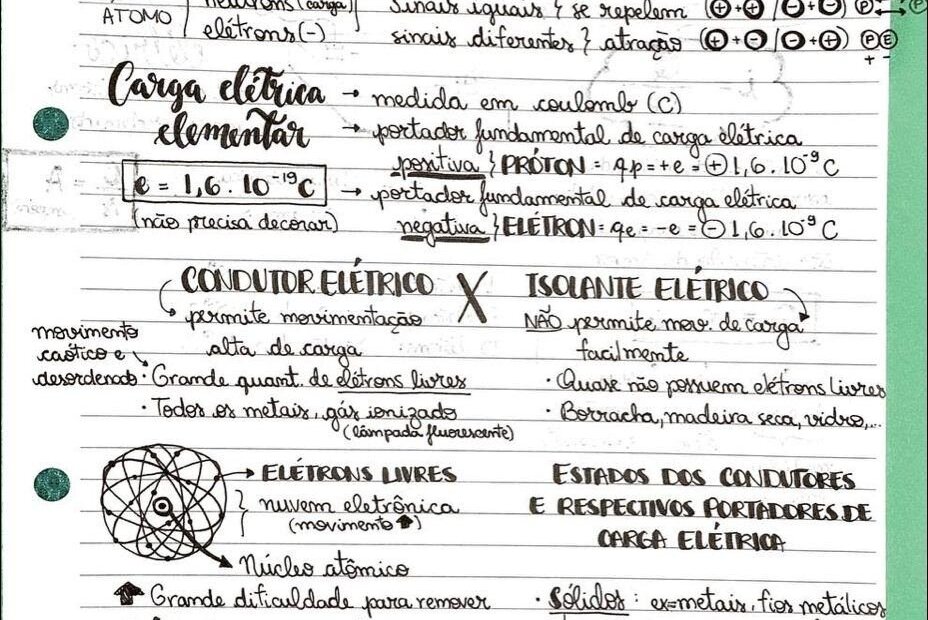 ATOMO
neutrons (carga)
elétrons (-)
Sinais iguais } se repelem (+ + + / - + -) P ↔ P
sinais diferentes } atração (+ + - / - + +) P E
+ -
Carga elétrica
elementar
e = 1,6 . 10⁻¹⁹ C
(não precisa decorar)
→ medida em coulomb (C)
→ portador fundamental de carga elétrica
positiva } PRÓTON = qp = +e = + 1,6 . 10⁻⁹ C
→ portador fundamental de carga elétrica
negativa } ELÉTRON = qe = -e = - 1,6 . 10⁻⁹ C
CONDUTOR ELÉTRICO X ISOLANTE ELÉTRICO
permite movimentação
alta de carga
movimento
caótico e
desordenado
· Grande quant. de elétrons livres
· Todos os metais, gás ionizado
(lâmpada fluorescente)
NÃO permite mov. de carga
facilmente
· Quase não possuem elétrons livres
· Borracha, madeira seca, vidro,...
→ ELÉTRONS LIVRES
} nuvem eletrônica
(movimento ↑)
Núcleo atômico
↑ Grande dificuldade para remover
ESTADOS DOS CONDUTORES
E RESPECTIVOS PORTADORES DE
CARGA ELÉTRICA
· Sólidos: ex=metais, fios metálicos